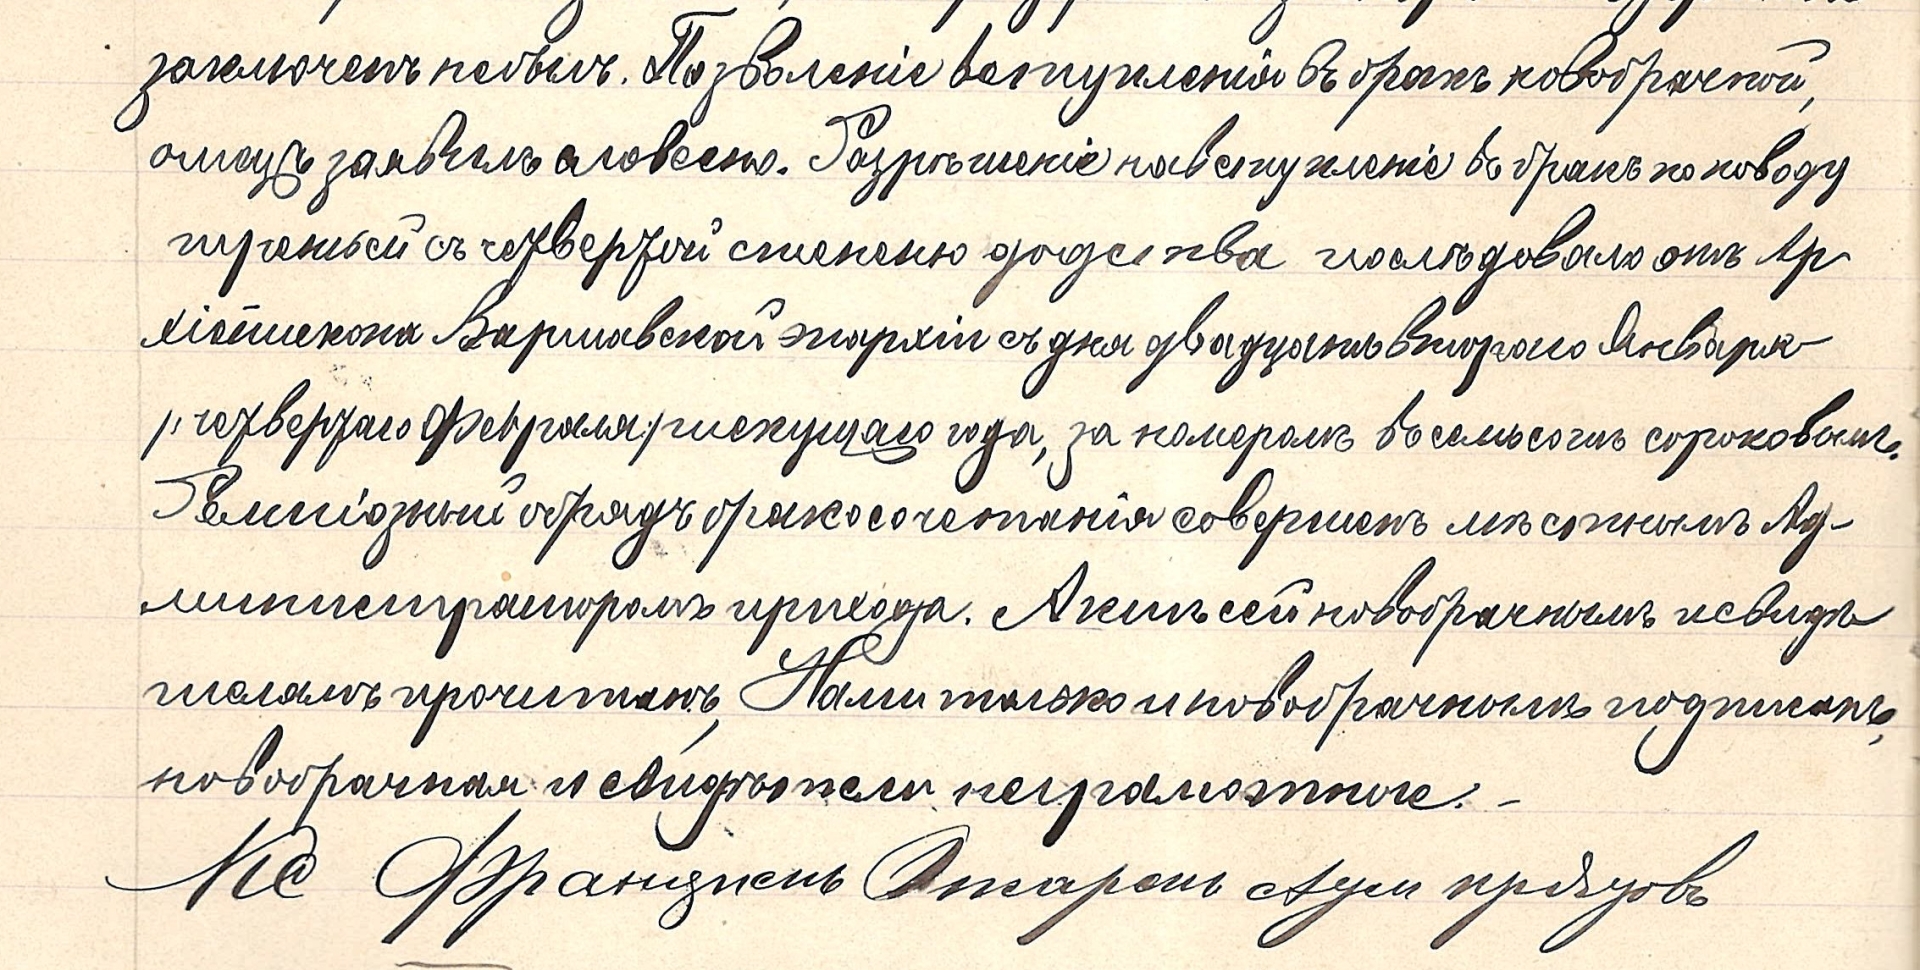 заключенъ небылъ. Позволеніе вступленія въ бракъ новобрачной,
отецъ заявилъ словесно. Разрѣшеніе навступленіе въ бракъ по поводу
третьей съ четвертой степеню родства послѣдовало отъ Ар
хіепископа Варшавской эпархіи съ дня двадцать втораго Января
/:четвертаго Февраля:/ текущаго года, за номеромъ весемьсотъ сороковымъ.
Религіозный обрядъ бракосочетанія совершенъ мѣстнымъ Ад-
министраторомъ прихода. Актъ сей новобрачнымъ и свидѣ
телямъ прочитанъ, Нами только и новобрачнымъ подписанъ,
новобрачная и свидѣтели неграмотные. -
Кс Францискъ